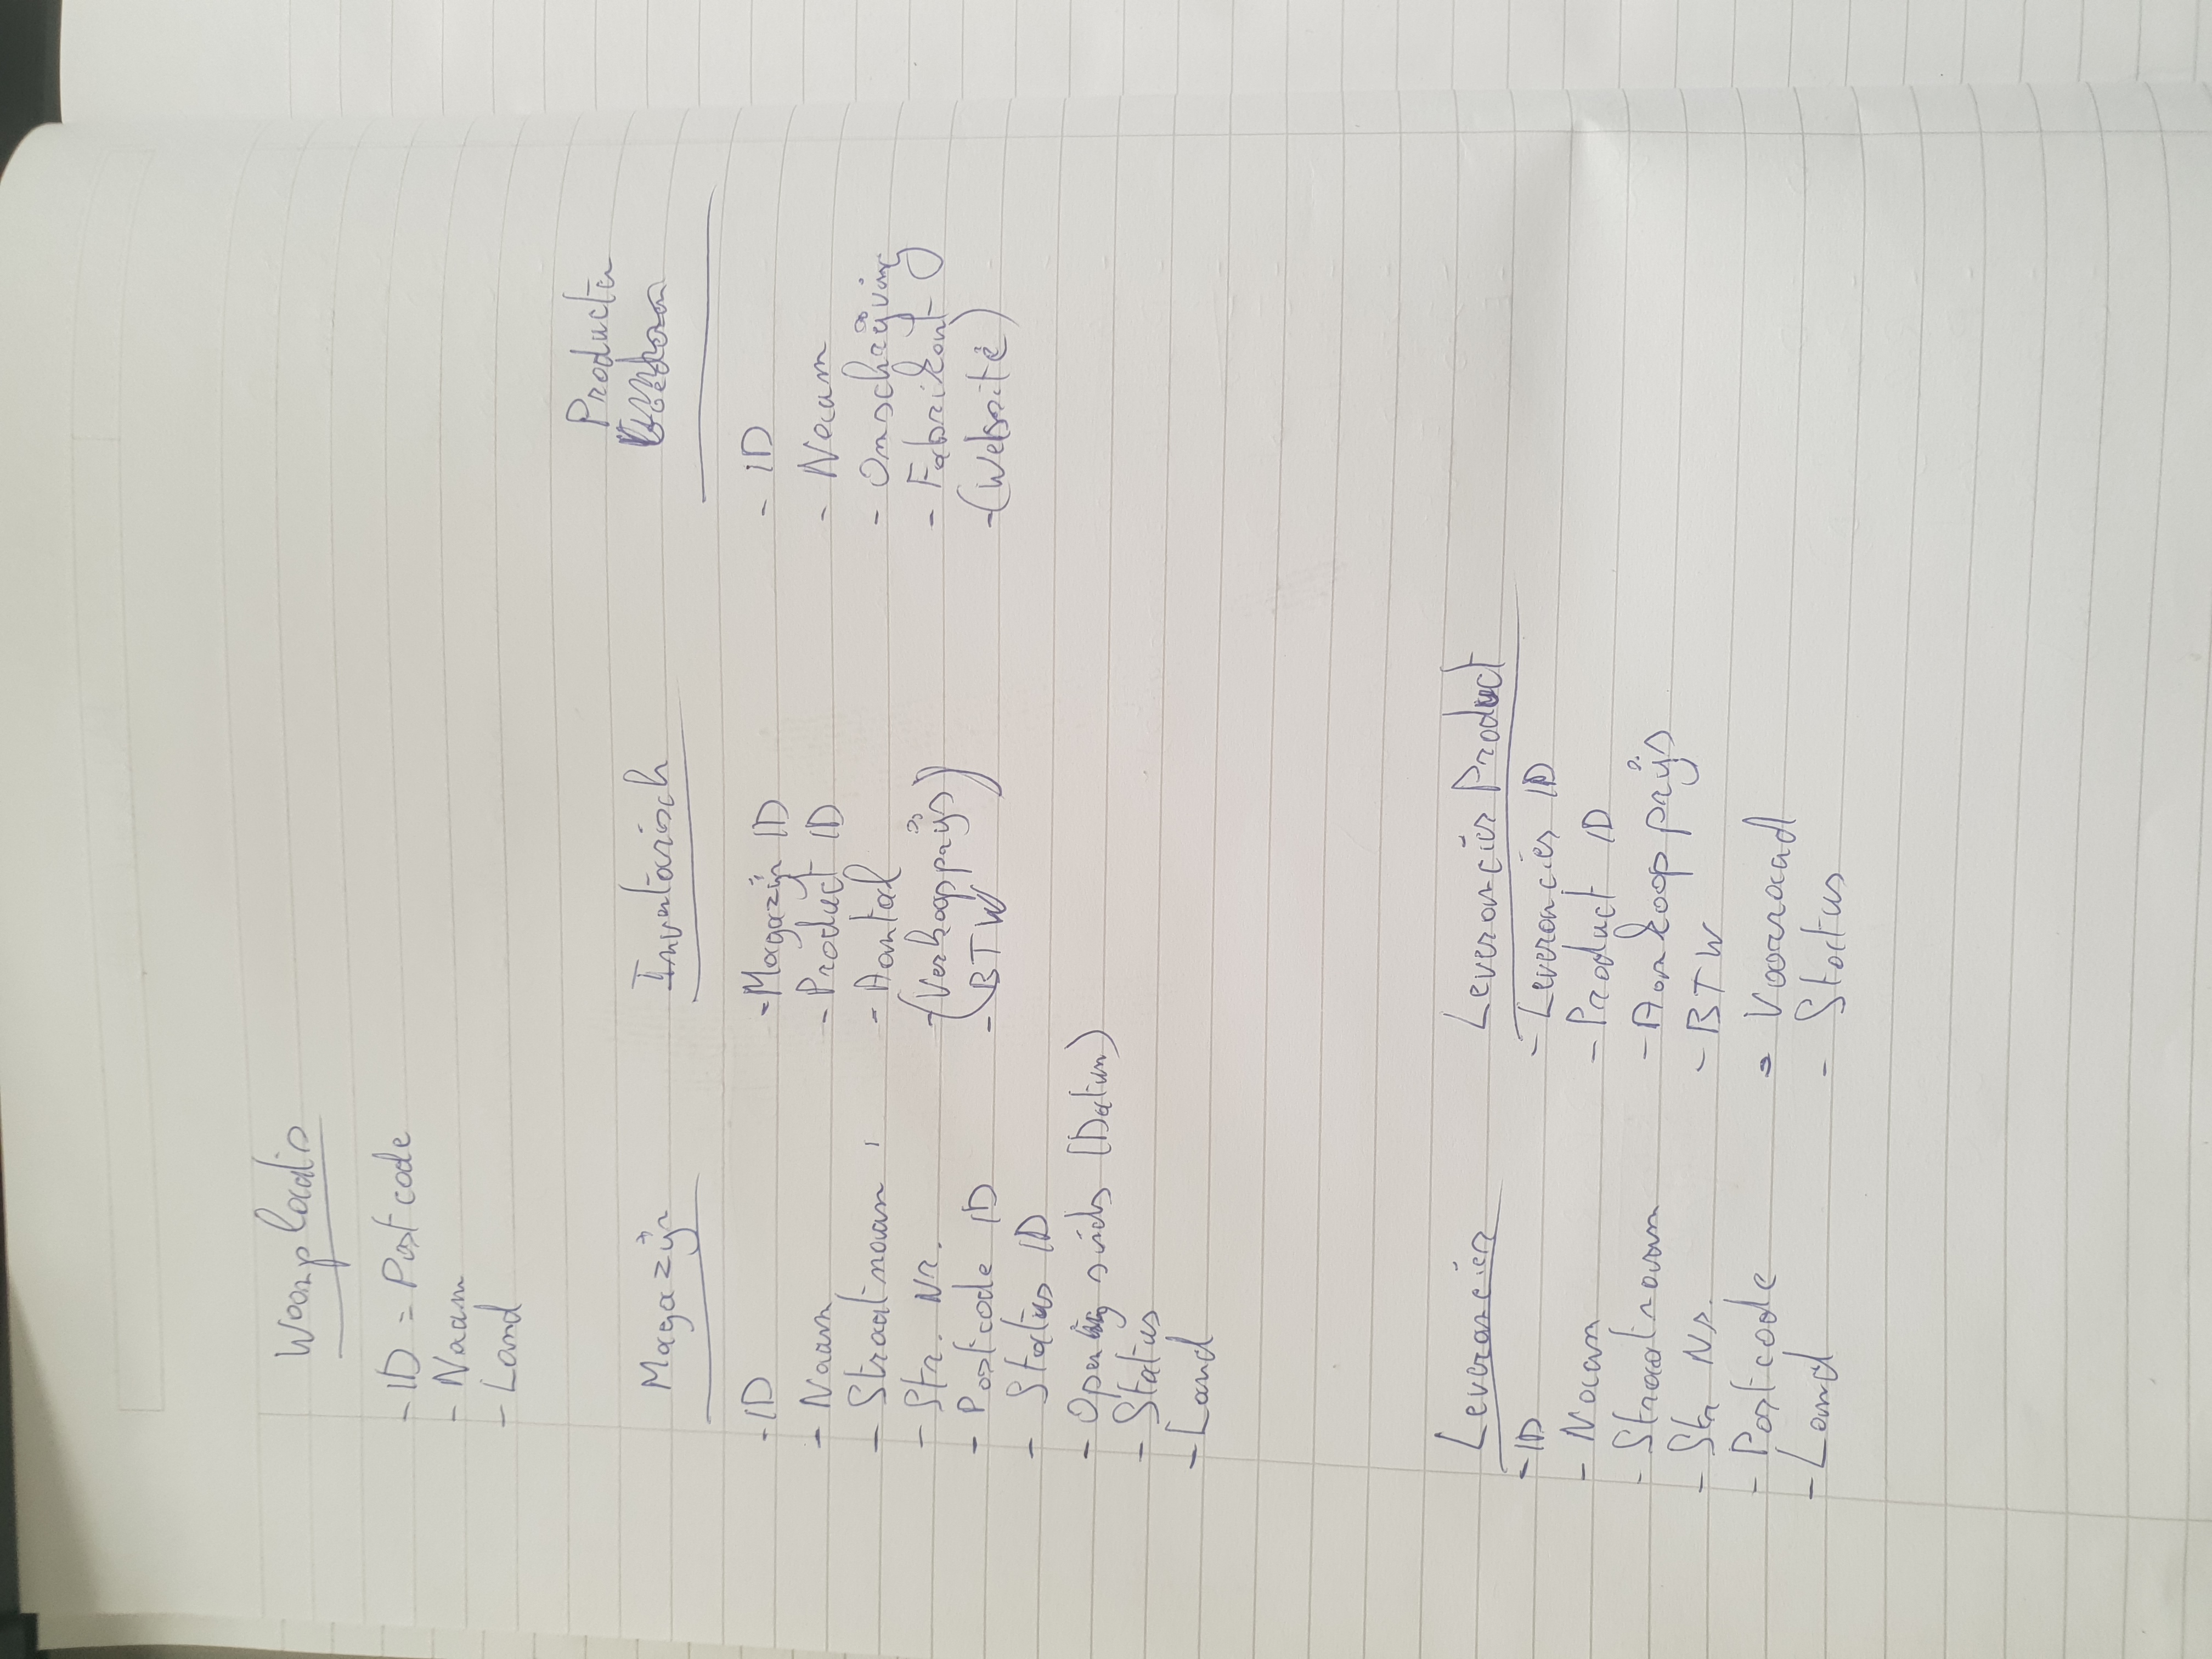 Woonplaats
- ID = Postcode
- Naam
- Land
Magazijn
- ID
- Naam
- Straatnaam
- Str. Nr.
- Postcode ID
- Status ID
- Opening sinds (Datum)
- Status
- Land
Inventarisch
- Magazijn ID
- Product ID
- Aantal
- (Verkoopprijs)
- BTW
Producten
- ID
- Naam
- Omschrijving
- Fabrikant
- (Website)
Leverancier
- ID
- Naam
- Straatnaam
- Str Nr.
- Postcode
- Land
Leverancier Product
- Leverancier ID
- Product ID
- Aankoopprijs
- BTW
- Voorraad
- Status